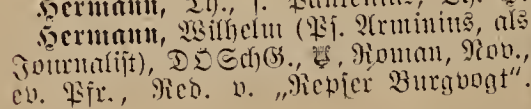 Hermann, Th., s. Pantenius, Th. H.
Hermann, Wilhelm (Ps. Arminius, als
Journalist), DÖSchG., Roman, Nov.,
ev. Pfr., Red. v. „Repser Burgvogt“.